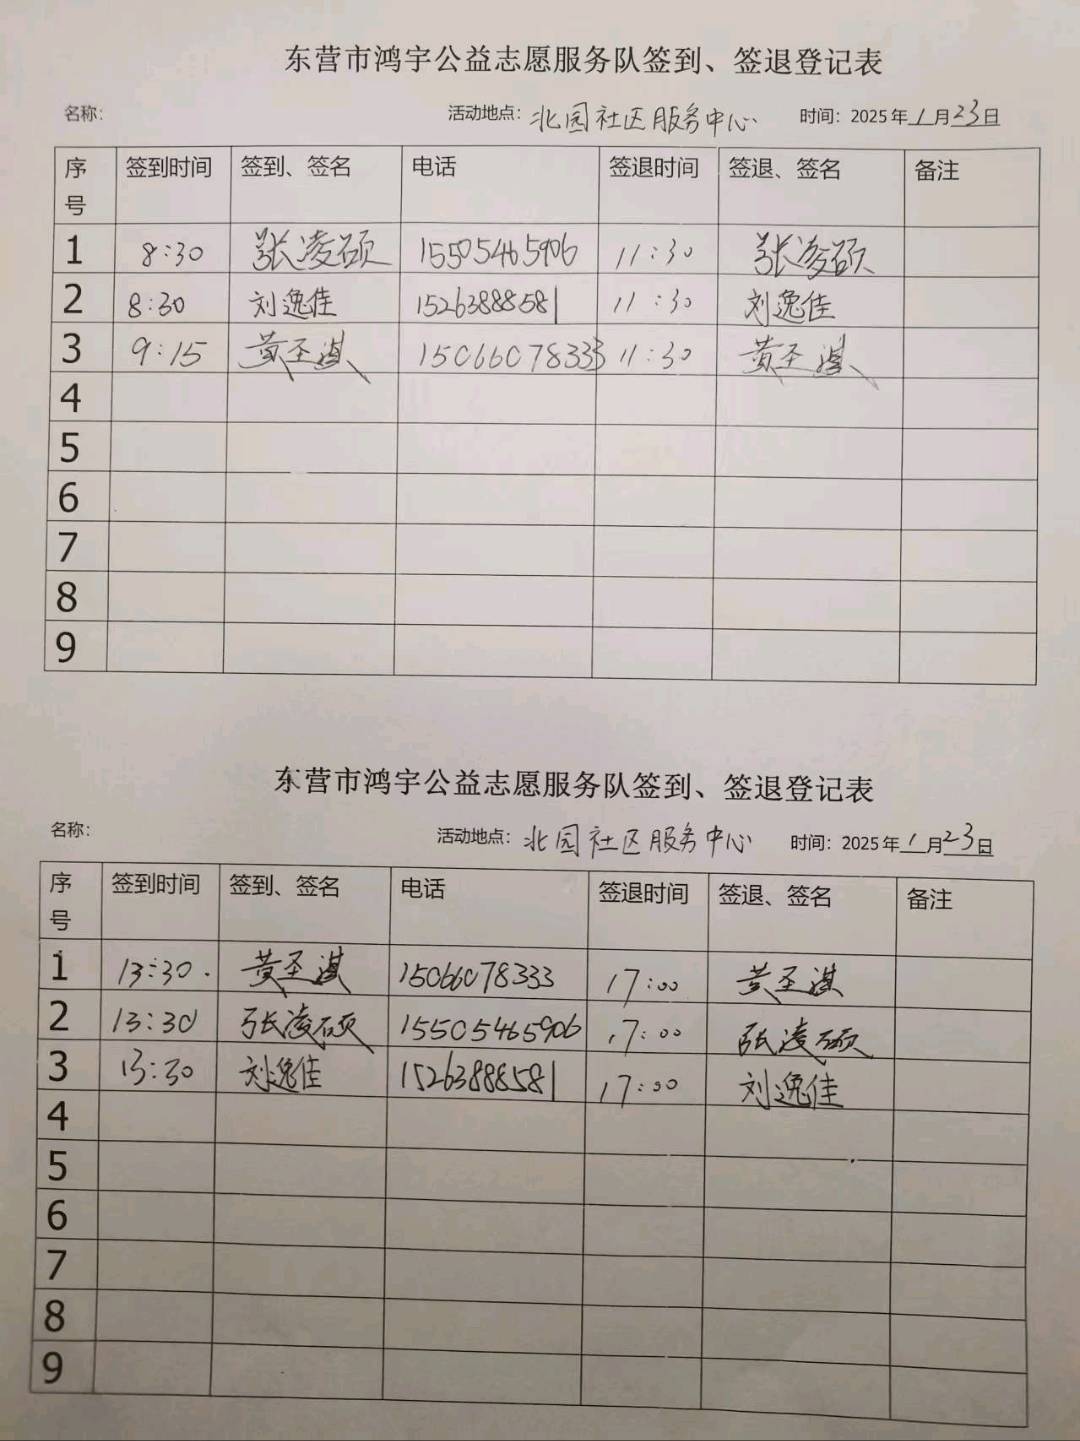 东营市鸿宇公益志愿服务队签到、签退登记表
名称: 活动地点: 北园社区服务中心 时间: 2025年1月23日
序号 签到时间 签到、签名 电话 签退时间 签退、签名 备注
1 8:30 张凌硕 15505465906 11:30 张凌硕
2 8:30 刘逸佳 15263888581 11:30 刘逸佳
3 9:15 黄圣淇 15066078333 11:30 黄圣淇
4
5
6
7
8
9
东营市鸿宇公益志愿服务队签到、签退登记表
名称: 活动地点: 北园社区服务中心 时间: 2025年1月23日
序号 签到时间 签到、签名 电话 签退时间 签退、签名 备注
1 13:30. 黄圣淇 15066078333 17:00 黄圣淇
2 13:30 张凌硕 15505465906 17:00 张凌硕
3 13:30 刘逸佳 15263888581 17:00 刘逸佳
4
5
6
7
8
9